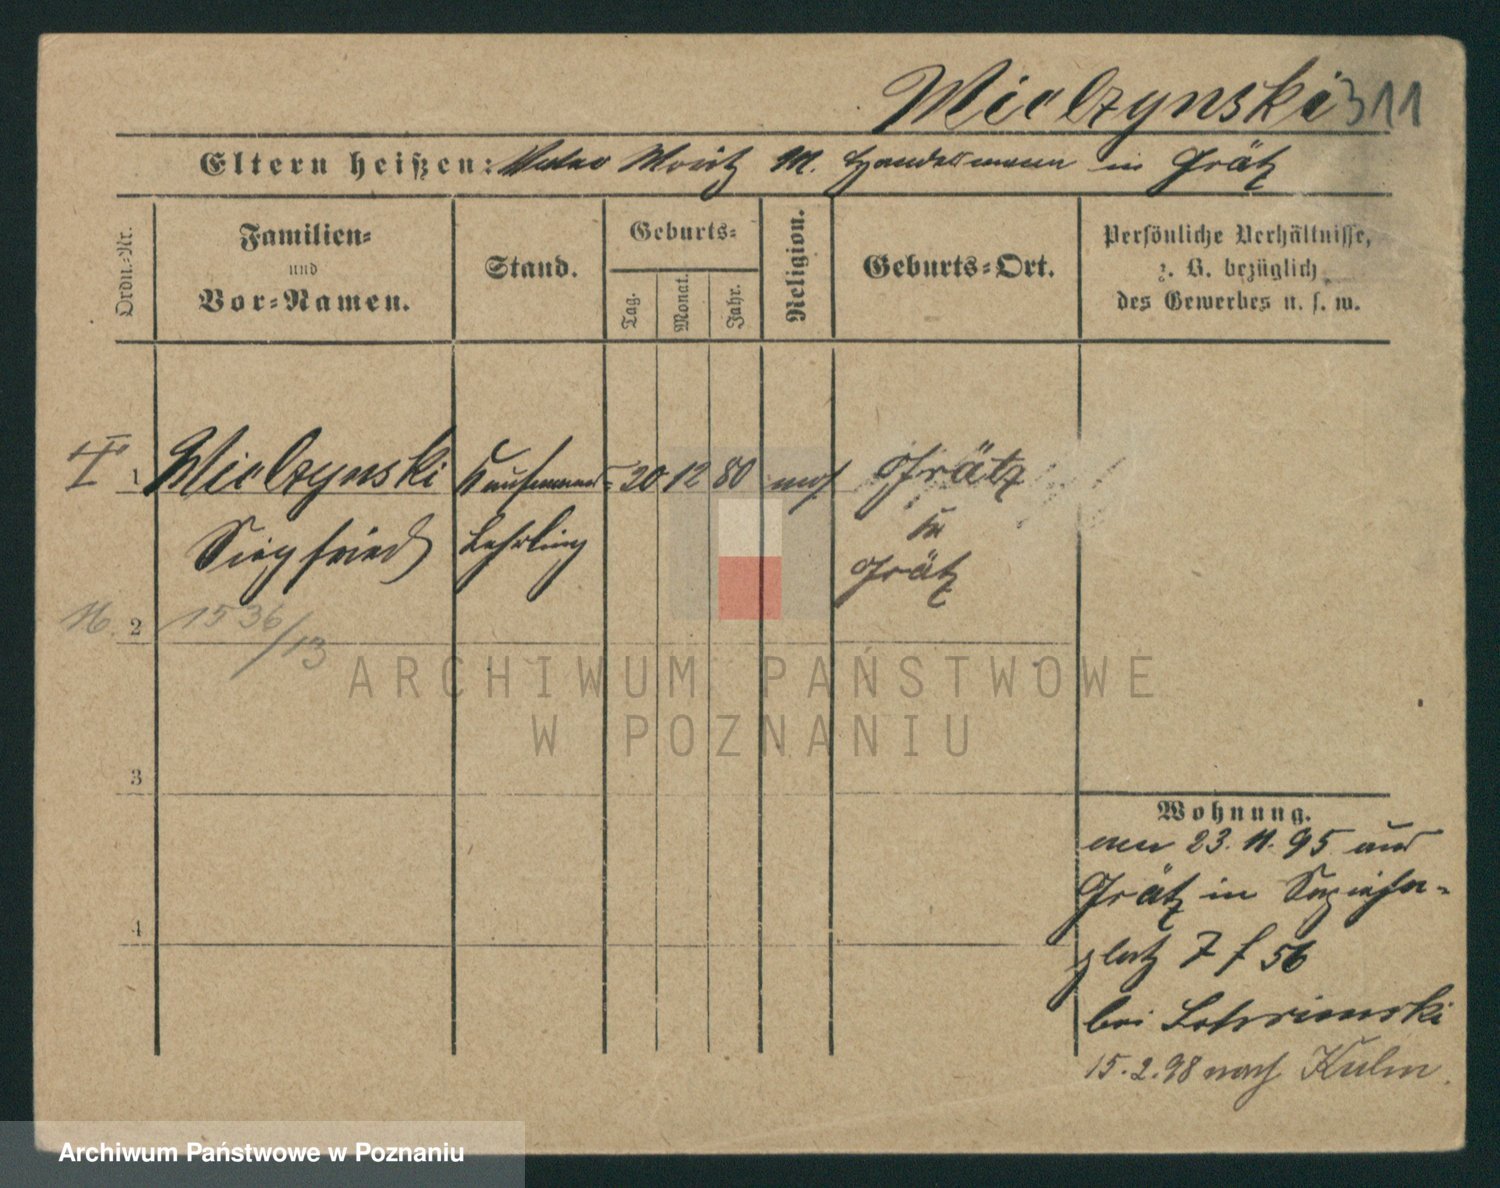 Mielzynski 311
Eltern heißen: Vater Moritz M. Handelsmann in Grätz
Ordn.-Nr.
Familien-
und
Vor-Namen.
Stand.
Geburts-
Tag.
Monat.
Jahr.
Religion.
Geburts-Ort.
Persönliche Verhältnisse,
z. B. bezüglich
des Gewerbes u. s. w.
1 Mielzynski Kaufmanns- 20 12 80 mos Grätz
Siegfried Lehrling
Kr
Grätz
2 1536/13
3
4
ARCHIWUM PAŃSTWOWE
W POZNANIU
Wohnung.
23. 11. 95 aus
Grätz in Sapieha-
platz 7 f 56
bei
15. 2. 98 nach Kulm.
Archiwum Państwowe w Poznaniu